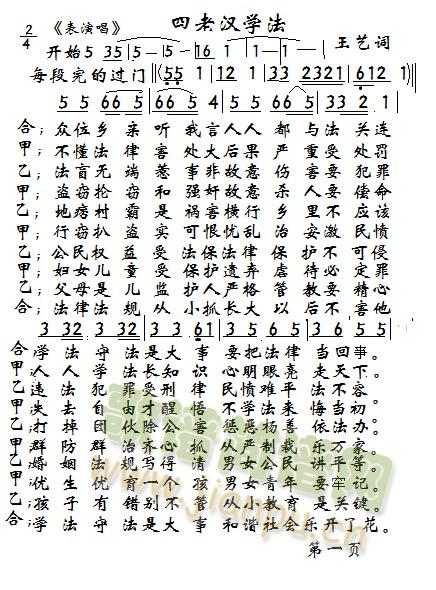 四老汉学法
2/4 《表演唱》
王艺词
开始5 35 | 5 — | 5 — | 16 1 | 1 — | 1 — |
每段完的过门 ‖(55 1 | 12 1 | 33 2321 | 612 1) |
5 5 | 66 5 | 66 5 | 4 5 | 5 5 | 66 5 | 33 2 | 2 — |
合；众位乡亲听我言人人都与法关连
甲；不懂法律害处大后果严重受处罚
乙；法盲无端惹事非故意伤害要犯罪
甲；盗窃抢窃和强奸故意杀人要偿命
乙；地痞村霸是祸害横行乡里不应该
甲；行窃扒盗实可恨忧乱治安激民愤
乙；公民权益受法保法律保护不可侵
甲；妇女儿童受法保护遗弃虐待必定罪
乙；父母是儿监护人严格管教要精心
合；法律法规从小抓长大以后不害他
3 32 | 3 32 | 3 3 | 61 | 3 6 5 | 3 6 | 5 5 |
合；学法守法是大事要把法律当回事。
甲；人人学法长知识心明眼亮走天下。
乙；违法犯罪受刑律民愤难平法不容。
甲；失去自由才醒悟不学法来悔当初
乙；打掉团伙除公害惩恶杨善依法办。
甲；群防群治齐心抓从严制裁乐万家。
乙；婚姻法规写得清男女公民讲平等
甲；优生优育一个孩男女青年要牢记。
乙；孩子有错别不管从小教育是关键。
合；学法守法是大事和谐社会乐开了花。
第一页